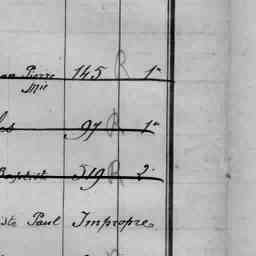 Pierre 145 R 1ª
Mie
97 R 1ª
Baptiste 519 R 2ª
iste Paul Impropre